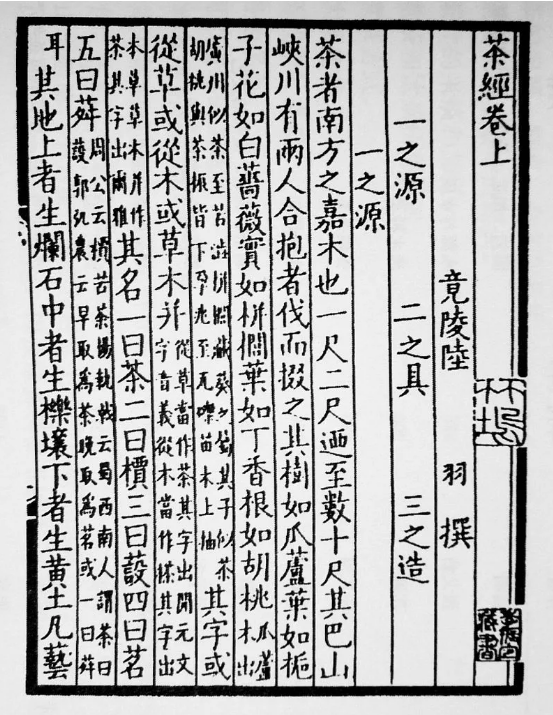 茶經卷上
竟陵陸 羽 撰
一之源 二之具 三之造
一之源
茶者南方之嘉木也一尺二尺迺至數十尺其巴山
峽川有兩人合抱者伐而掇之其樹如瓜蘆葉如梔
子花如白薔薇實如栟櫚葉如丁香根如胡桃瓜蘆木出
廣州似茶至苦澁栟櫚蒲葵之屬其子似茶胡桃與茶根皆下孕兆至瓦礫苗木上抽其字或
從草或從木或草木并從草當作茶其字出開元文字音義從木當作搽其字出
本草草木并作茶其字出爾雅其名一曰茶二曰檟三曰蔎四曰茗
五曰荈周公云檟苦茶揚執戟云蜀西南人謂茶曰蔎郭弘農云早取爲茶晚取爲茗或一曰荈
耳其地上者生爛石中者生櫟壤下者生黄土凡藝